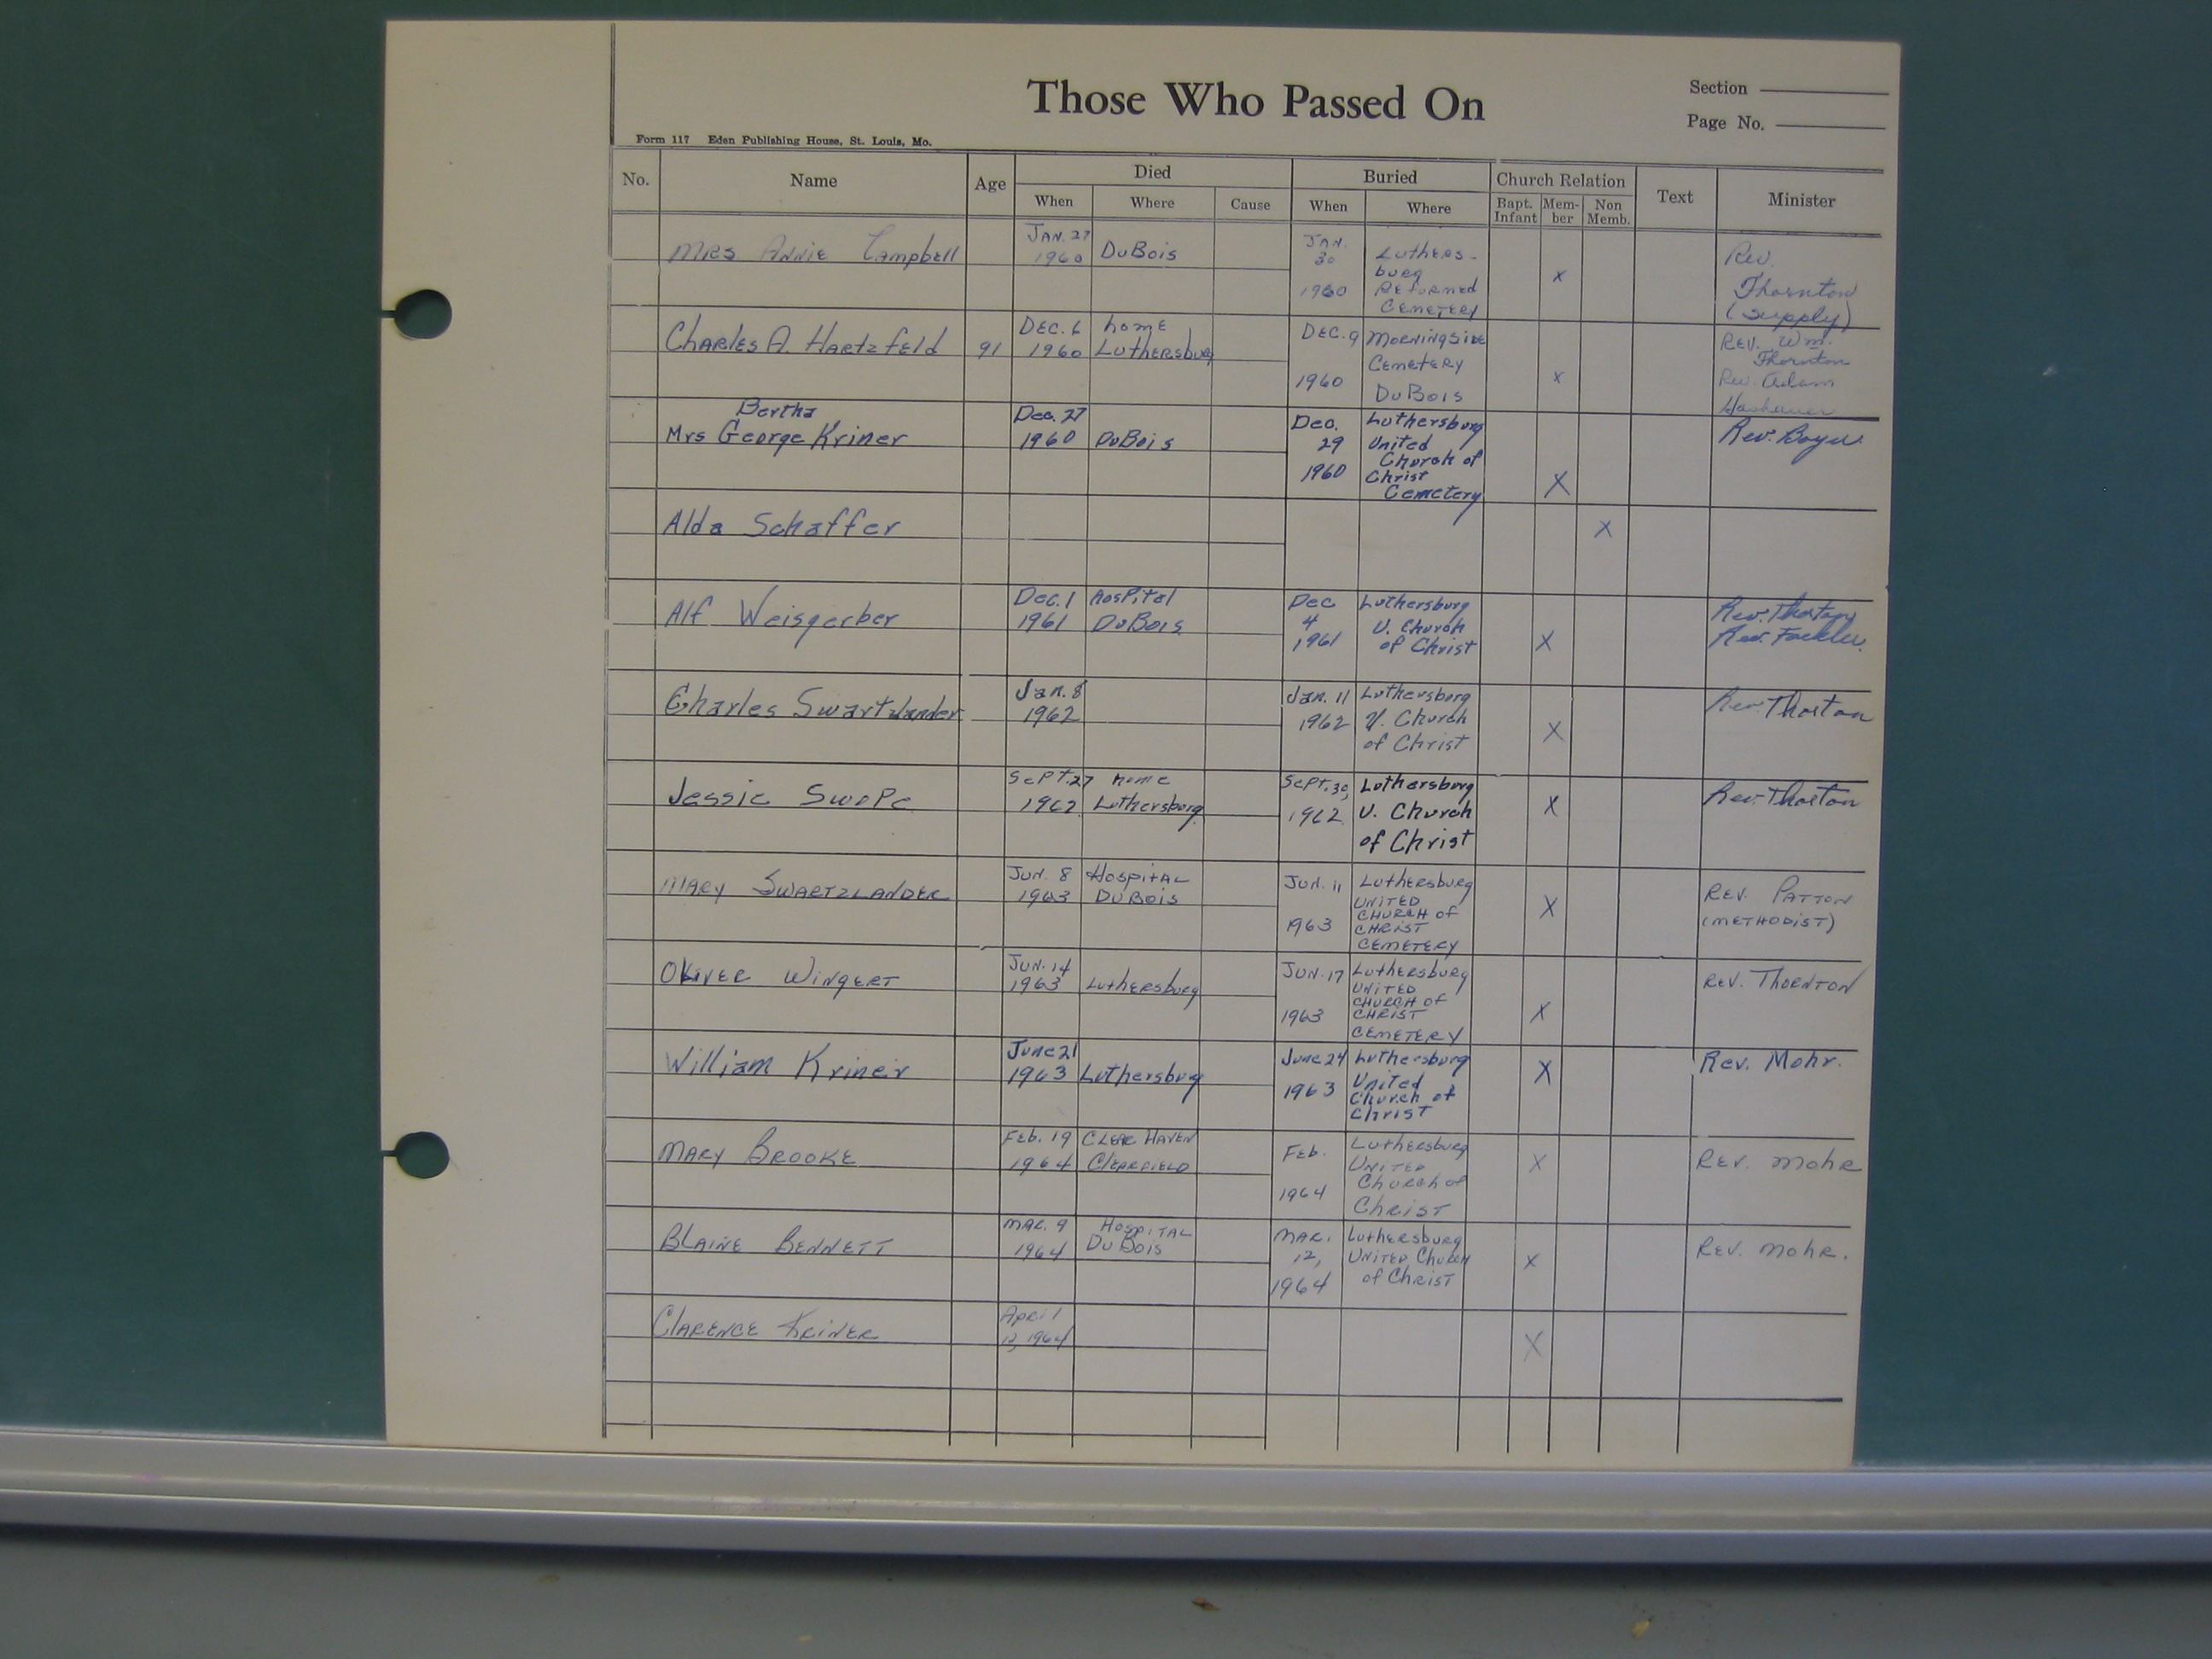 Those Who Passed On
Section
Page No.
Form 117 Eden Publishing House, St. Louis, Mo.
No. Name Age Died Buried Church Relation Text Minister
When Where Cause When Where Bapt. Infant Mem-ber Non Memb.
Mrs Annie Campbell Jan. 27 1960 DuBois Jan. 30 1960 Luthers-burg Reformed Cemetery x Rev. Thornton (supply)
Charles A. Hartzfeld 91 Dec. 6 1960 home Luthersburg Dec. 9 1960 Morningside Cemetery DuBois x Rev. Wm. Thornton Rev. Adam
Bertha
Mrs George Kriner Dec. 27 1960 DuBois Dec. 29 1960 Luthersburg United Church of Christ Cemetery X Rev. Boyer
Alda Schaffer X
Alf Weisgerber Dec. 1 1961 hospital DuBois Dec 4 1961 Luthersburg U. Church of Christ X Rev. Thorton Rev. Fackler.
Charles Swartzlander Jan. 8 1962 Jan. 11 1962 Luthersburg U. Church of Christ X Rev. Thorton
Jessie Swope Sept. 27 1962 home Luthersburg Sept. 30, 1962 Luthersburg U. Church of Christ X Rev. Thorton
Mary Swartzlander Jun. 8 1963 Hospital DuBois Jun. 11 1963 Luthersburg United Church of Christ Cemetery X Rev. Patton (Methodist)
Oliver Wingert Jun. 14 1963 Luthersburg Jun. 17 1963 Luthersburg United Church of Christ Cemetery X Rev. Thornton
William Kriner June 21 1963 Luthersburg June 24 1963 Luthersburg United Church of Christ X Rev. Mohr.
Mary Brooke Feb. 19 1964 Clear Haven Clearfield Feb. 1964 Luthersburg United Church of Christ X Rev. Mohr
Blaine Bennett Mar. 9 1964 Hospital DuBois Mar. 12, 1964 Luthersburg United Church of Christ X Rev. Mohr.
Clarence Kriner April 1964 X